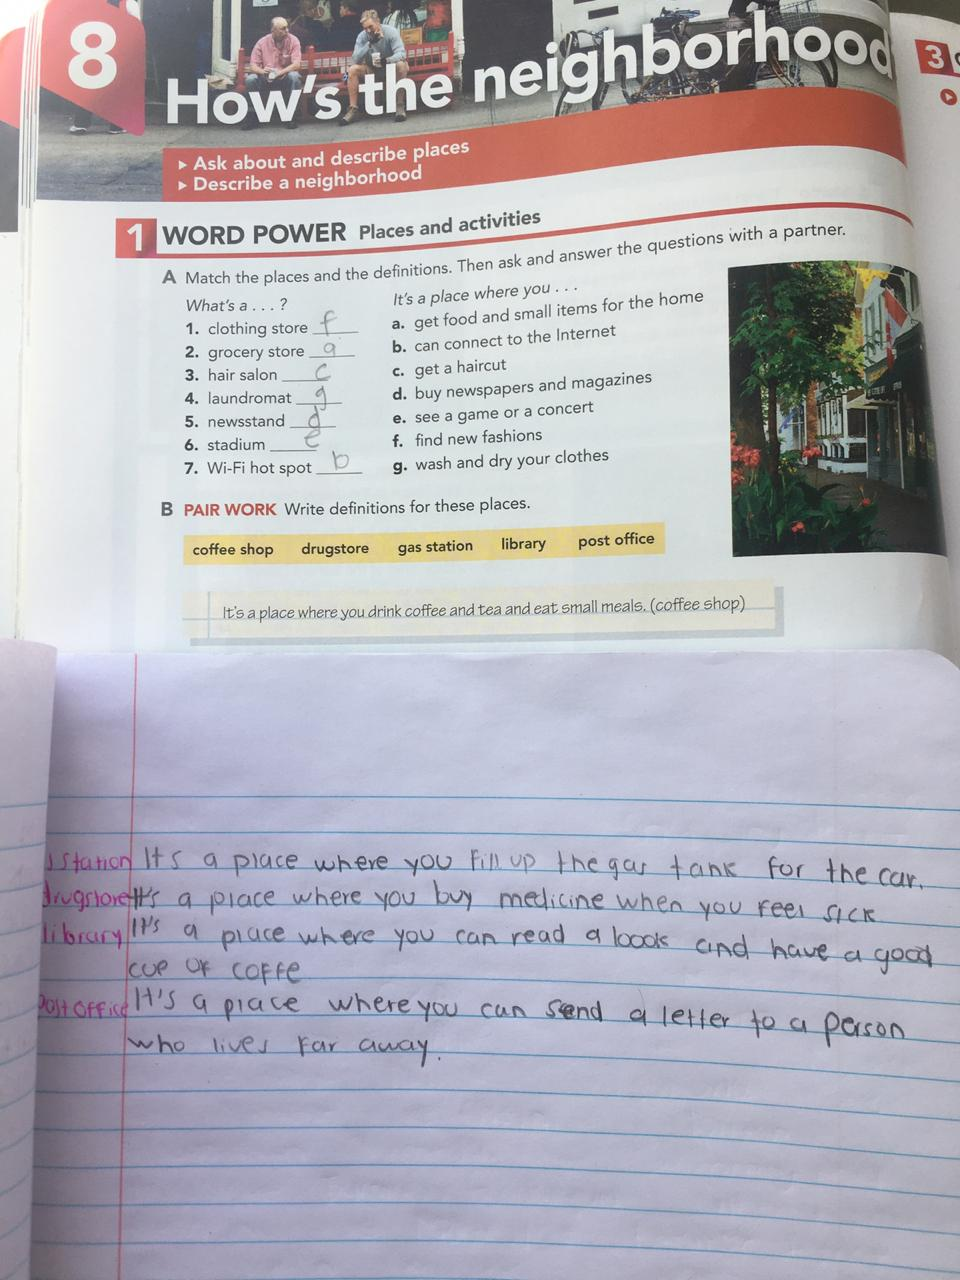 8
How's the neighborhood
3
▸ Ask about and describe places
▸ Describe a neighborhood
1 WORD POWER Places and activities
A Match the places and the definitions. Then ask and answer the questions with a partner.
What's a . . . ?
1. clothing store f
2. grocery store a
3. hair salon c
4. laundromat g
5. newsstand d
6. stadium e
7. Wi-Fi hot spot b
It's a place where you . . .
a. get food and small items for the home
b. can connect to the Internet
c. get a haircut
d. buy newspapers and magazines
e. see a game or a concert
f. find new fashions
g. wash and dry your clothes
B PAIR WORK Write definitions for these places.
coffee shop drugstore gas station library post office
It's a place where you drink coffee and tea and eat small meals. (coffee shop)
station It's a place where you fill up the gas tank for the car.
drugstore It's a place where you buy medicine when you feel sick
library It's a place where you can read a book and have a good
cup of coffe
post office It's a place where you can send a letter to a person
who lives far away.